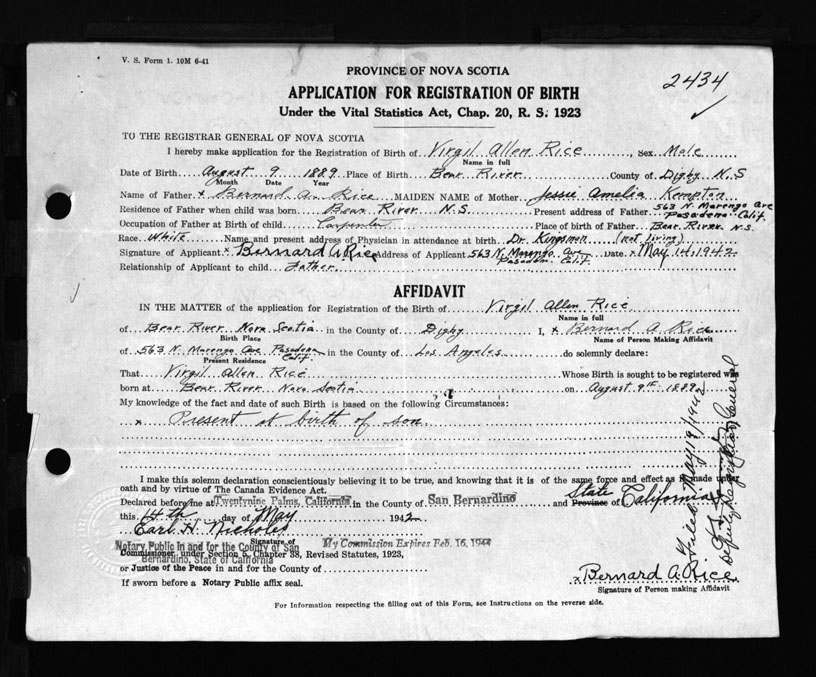 V. S. Form 1. 10M 6-41
2434
PROVINCE OF NOVA SCOTIA
APPLICATION FOR REGISTRATION OF BIRTH
Under the Vital Statistics Act, Chap. 20, R. S. 1923
TO THE REGISTRAR GENERAL OF NOVA SCOTIA
I hereby make application for the Registration of Birth of Virgil Allen Rice, Sex Male
Name in full
Date of Birth August 9 1889 Place of Birth Bear River County of Digby N.S
Month Day Year
Name of Father x Bernard A. Rice MAIDEN NAME of Mother Jessie Amelia Kempton
Residence of Father when child was born Bear River N.S. Present address of Father 563 N. Marengo Ave Pasadena Calif.
Occupation of Father at Birth of child Carpenter Place of birth of Father Bear River N.S.
Race White Name and present address of Physician in attendance at birth Dr. Kingsman (not living)
Signature of Applicant x Bernard A Rice Address of Applicant 563 N. Marengo Ave Pasadena Calif. Date x May 14, 1942
Relationship of Applicant to child Father
AFFIDAVIT
IN THE MATTER of the application for Registration of the Birth of Virgil Allen Rice
Name in full
of Bear River Nova Scotia in the County of Digby I, x Bernard A. Rice
Birth Place Name of Person Making Affidavit
of 563 N. Marengo Ave Pasadena Calif. in the County of Los Angeles do solemnly declare:
Present Residence
That Virgil Allen Rice Whose Birth is sought to be registered was
born at Bear River Nova Scotia on August 9th 1889
My knowledge of the fact and date of such Birth is based on the following Circumstances:
x Present at birth of son
I make this solemn declaration conscientiously believing it to be true, and knowing that it is of the same force and effect as if made under
oath and by virtue of The Canada Evidence Act.
Declared before me at Twentynine Palms, California in the County of San Bernardino and Province of State California
this 14th day of May 1942
Earl H. Nichols
Signature of My Commission Expires Feb. 16, 1944
Notary Public in and for the County of San
Commissioner, under Section 5, Chapter 38, Revised Statutes, 1923,
Bernardino, State of California
or Justice of the Peace in and for the County of
If sworn before a Notary Public affix seal.
x Bernard A. Rice
Signature of Person making Affidavit
For Information respecting the filling out of this Form, see Instructions on the reverse side.
Filed May 19/1942
Deputy Registrar General